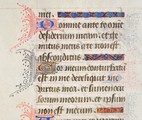 mei.
Domine ante te omne
desiderium meum et ge
mitus meus a te non est
absconditus
Cor meum conturbatum
est in me dereliquit me
virtus mea et lumen
oculorum meorum et ipsum
non est mecum